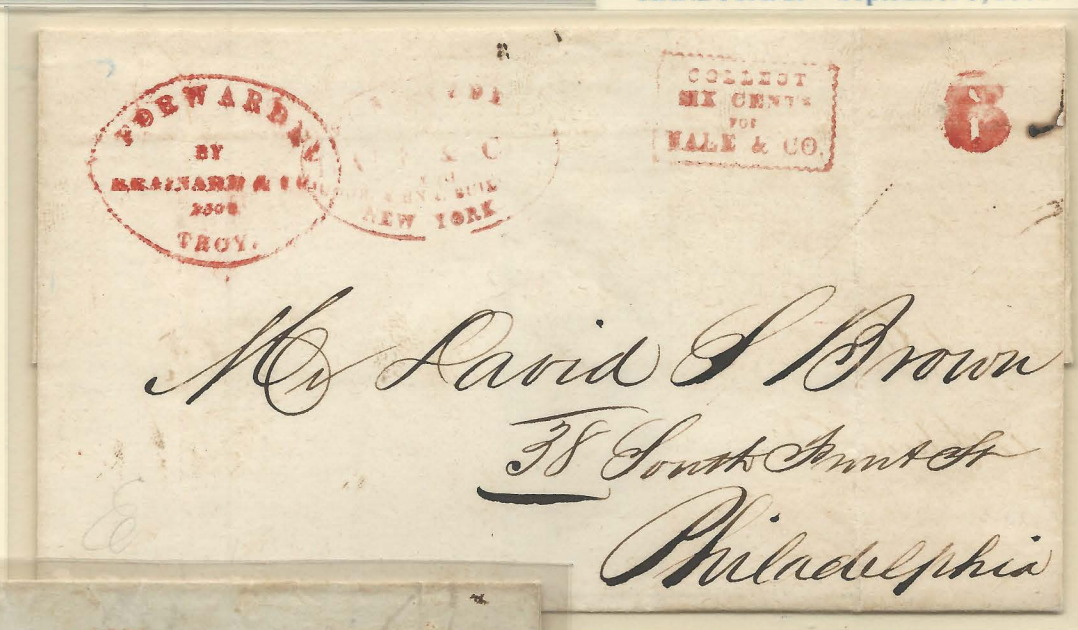 FORWARDED
BY
BRAINARD & CO.
TROY.
& C
NEW YORK
COLLECT
SIX CENTS
FOR
HALE & CO.
Mr David S Brown
38 South Front St
Philadelphia